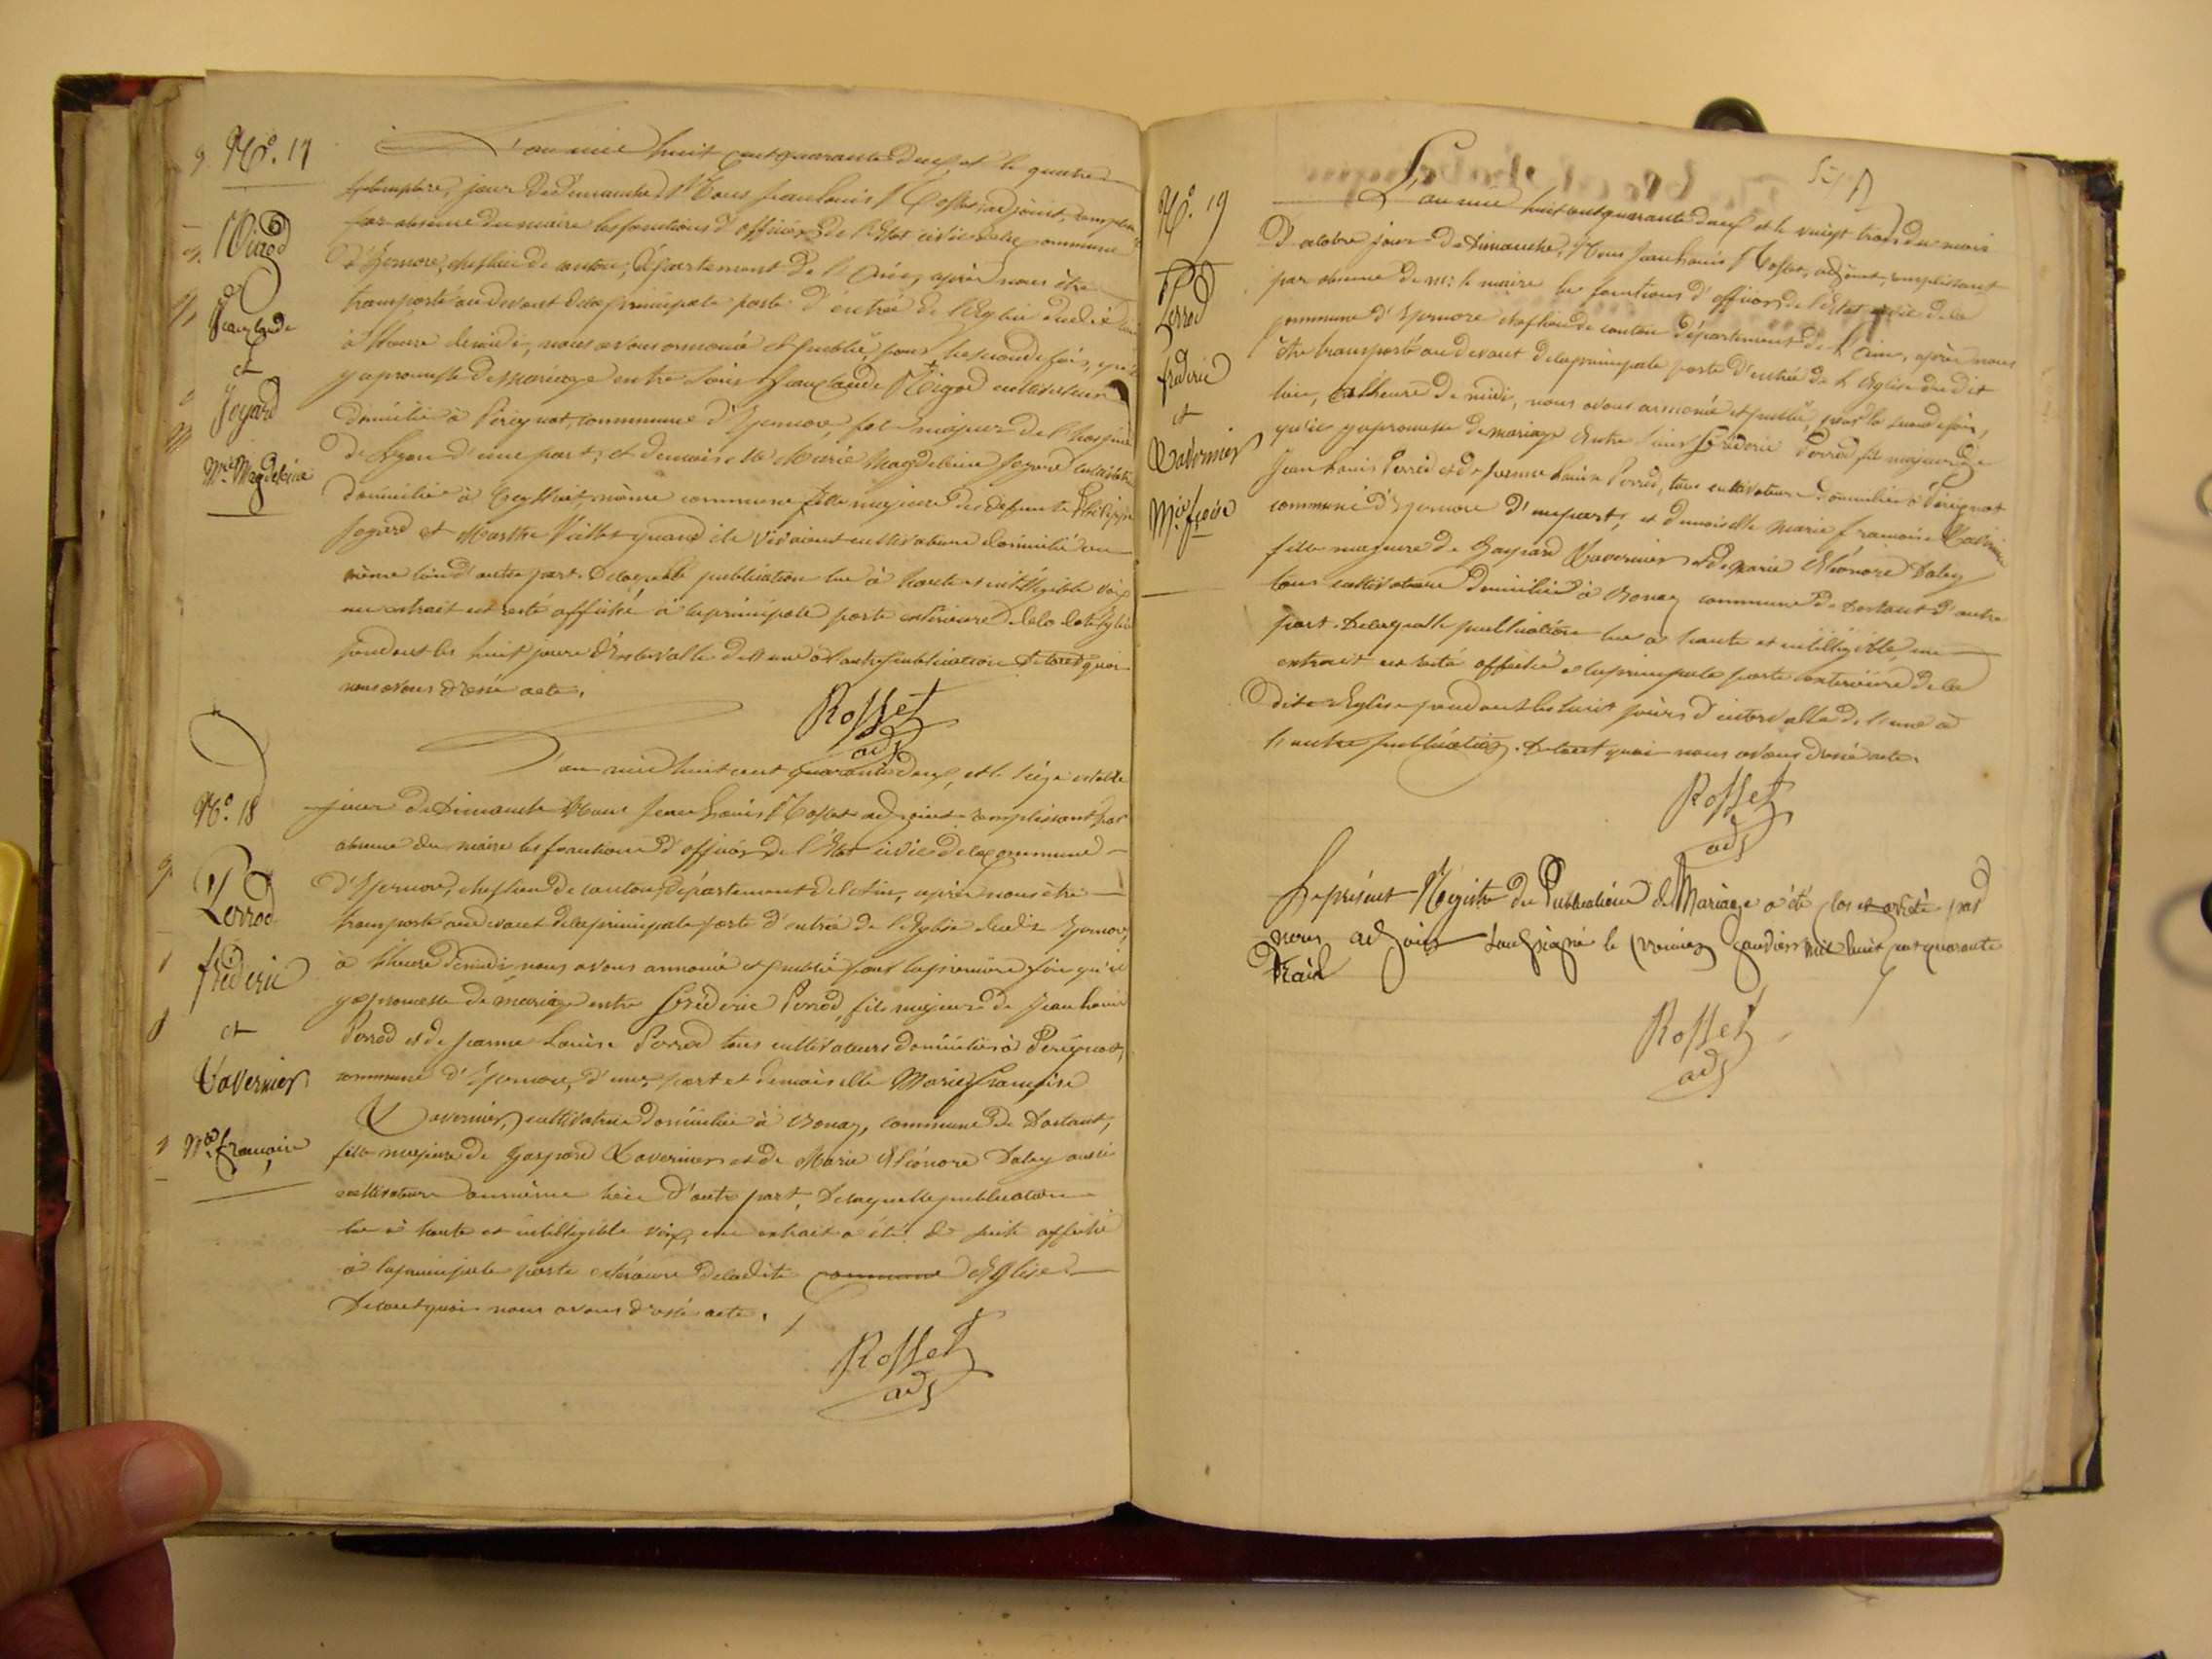 N°. 17
Jean Claude
et
Jogard
Mie Magdeleine
L'an mil huit cent quarante deux et le quatre
septembre, jour de Dimanche, Nous Jean Louis Rosset, adjoint, remplissant
par absence du maire les fonctions d'officier de l'Etat civil de la Commune
d'Izernore, chef lieu de canton, département de l'Ain, après nous être
transporté au devant de la principale porte d'entrée de l'Eglise dudit lieu
à l'heure de midi, nous avons annoncé et publié pour la seconde fois, qu'il
y a promesse de mariage entre Sieur Jean Claude cultivateur
domicilié à Pérignat, commune d'Izernore, fils majeur de l'hospice
de Lyon d'une part, et demoiselle Marie Magdeleine Jogard cultivatrice
domiciliée à même commune fille majeure des défunts Philippe
Jogard et Marthe quand ils vivaient cultivateurs domiciliés au
même lieu d'autre part. De laquelle publication lue à haute et intelligible voix
un extrait est resté affiché à la principale porte extérieure de la dite Eglise
pendant les huit jours d'intervalle de l'une à l'autre publication. De tout quoi
nous avons dressé acte.
Rosset
adj
N°. 18
Perrod
fréderic
et
Tavernier
Mie françoise
L'an mil huit cent quarante deux, et le seize octobre
jour de Dimanche Nous Jean Louis Rosset adjoint remplissant par
absence du maire les fonctions d'officier de l'Etat civil de la Commune
d'Izernore, chef lieu de canton, département de l'Ain, après nous être
transporté au devant de la principale porte d'entrée de l'Eglise dudit Izernore,
à l'heure de midi, nous avons annoncé et publié pour la première fois qu'il
y a promesse de mariage entre Fréderic Perrod, fils majeur de Jean Louis
Perrod et de Jeanne Louise Perrod tous cultivateurs domiciliés à Pérignat,
commune d'Izernore, d'une part et demoiselle Marie françoise
Tavernier, cultivatrice domiciliée à Bonaz, commune de Dortant,
fille majeure de Gaspard Tavernier et de Marie Eléonore Daley aussi
cultivateurs au même lieu d'autre part, De laquelle publication
lue à haute et intelligible voix, un extrait a été de suite affiché
à la principale porte extérieure de la dite commune Eglise
De tout quoi nous avons dressé acte.
Rosset
adj
N°. 19
Perrod
fréderic
et
Tavernier
Mie fçoise
L'an mil huit cent quarante deux et le vingt trois du mois
d'octobre jour de Dimanche, Nous Jean Louis Rosset, adjoint, remplissant
par absence de mr. le maire les fonctions d'officier de l'Etat civil de la
commune d'Izernore chef lieu de canton département de l'Ain, après nous
être transporté au devant de la principale porte d'entrée de l'Eglise du dit
lieu, à l'heure de midi, nous avons annoncé et publié, pour la seconde fois,
qu'il y a promesse de mariage Entre Sieur Fréderic Perrod fils majeur de
Jean Louis Perrod et de Jeanne Louise Perrod, tous cultivateurs domiciliés à Pérignat
commune d'Izernore d'une part, et demoiselle Marie françoise Tavernier
fille majeure de Gaspard Tavernier et de Marie Eléonore Daley
tous cultivateurs domiciliés à Bonaz commune de Dortant d'autre
part. De laquelle publication lue à haute et intelligible, un
extrait est resté affiché à la principale porte extérieure de la
dite Eglise pendant les huit jours d'intervalle de l'une à
l'autre publication. De tout quoi nous avons dressé acte.
Rosset
adj
Le présent Registre de Publication de Mariage a été clos et arrêté par
nous adjoint soussigné le premier Janvier mil huit cent quarante
trois
Rosset
adj